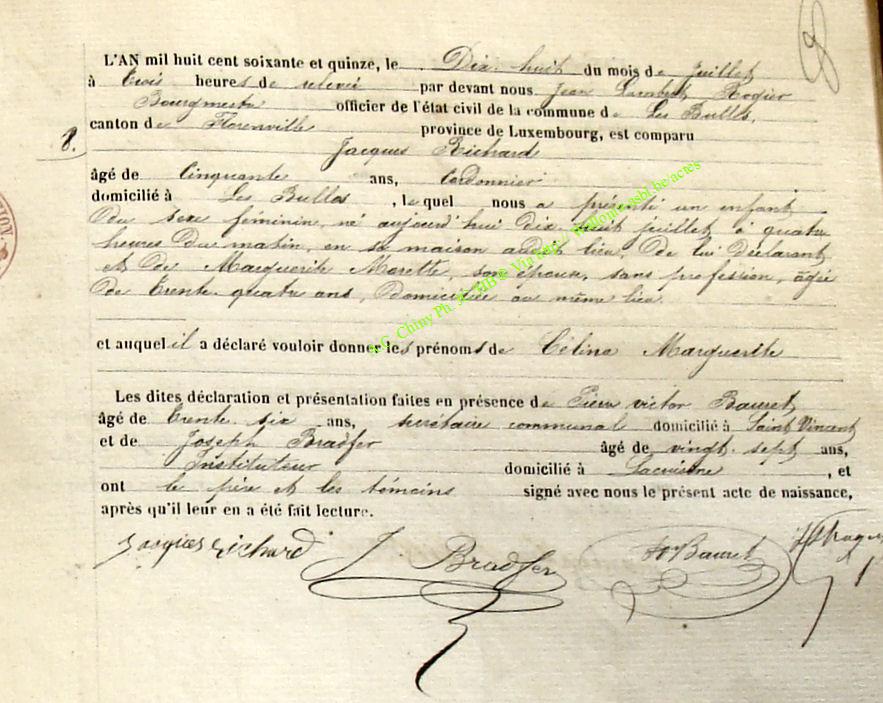 8
L'AN mil huit cent soixante et quinze, le Dix-huit du mois de Juillet
à trois heures de relevée par devant nous Jean Lambert Rogier
Bourgmestre officier de l'état civil de la commune de Les Bulles,
canton de Florenville province de Luxembourg, est comparu
8. Jacques Richard
âgé de Cinquante ans, Cordonnier
domicilié à Les Bulles, lequel nous a présenté un enfant
du sexe féminin, né aujourd'hui dix huit juillet à quatre
heures du matin, en sa maison audit lieu, de lui déclarant
et de Marguerite Morette, son épouse, sans profession, âgée
de trente-quatre ans, domiciliée au même lieu
et auquel il a déclaré vouloir donner les prénoms de Céline Marguerite
Les dites déclaration et présentation faites en présence de Pierre Victor Bauret,
âgé de trente-six ans, secrétaire communal domicilié à Saint Vincent
et de Joseph Bradfer âgé de vingt-sept ans,
Instituteur domicilié à Lacuisne, et
ont le père et les témoins signé avec nous le présent acte de naissance,
après qu'il leur en a été fait lecture.
Jacques richard J. Bradfer Bauret